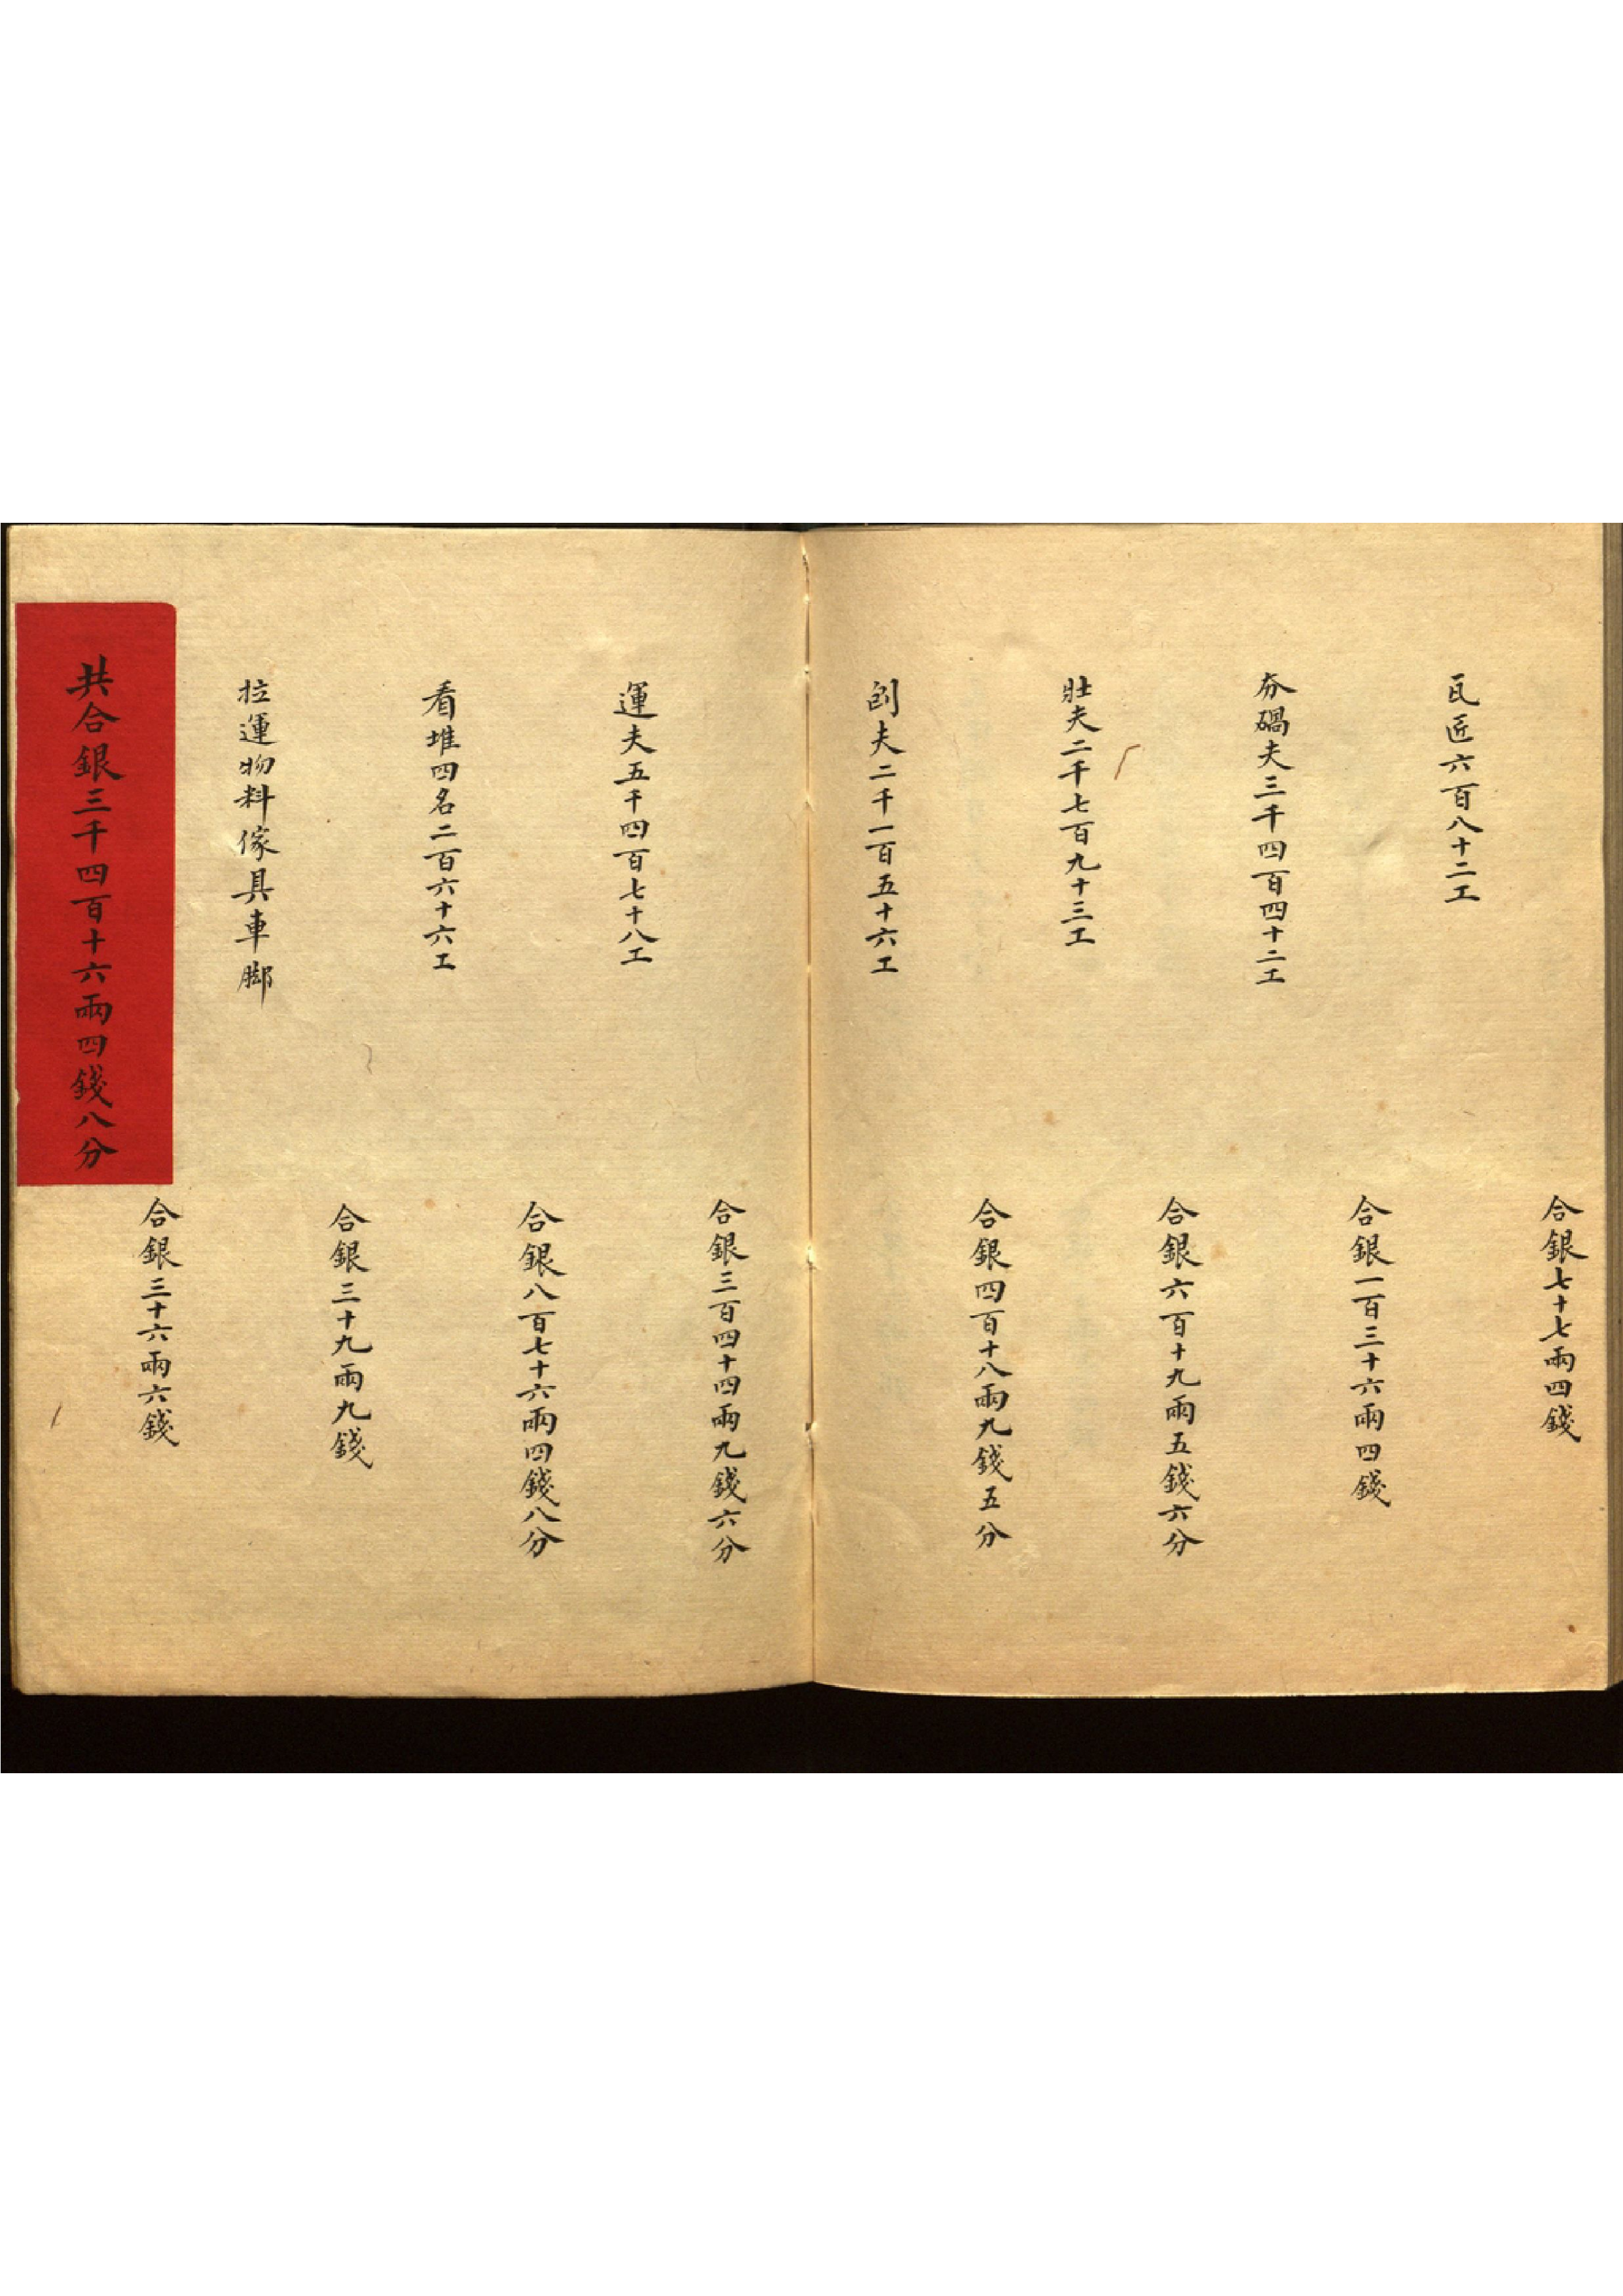 合銀七十七兩四錢
瓦匠六百八十二工
合銀一百三十六兩四錢
夯碢夫三千四百四十二工
合銀六百十九兩五錢六分
壯夫二千七百九十三工
合銀四百十八兩九錢五分
刨夫二千一百五十六工
合銀三百四十四兩九錢六分
運夫五千四百七十八工
合銀八百七十六兩四錢八分
看堆四名二百六十六工
合銀三十九兩九錢
拉運物料傢具車脚
合銀三十六兩六錢
共合銀三千四百十六兩四錢八分